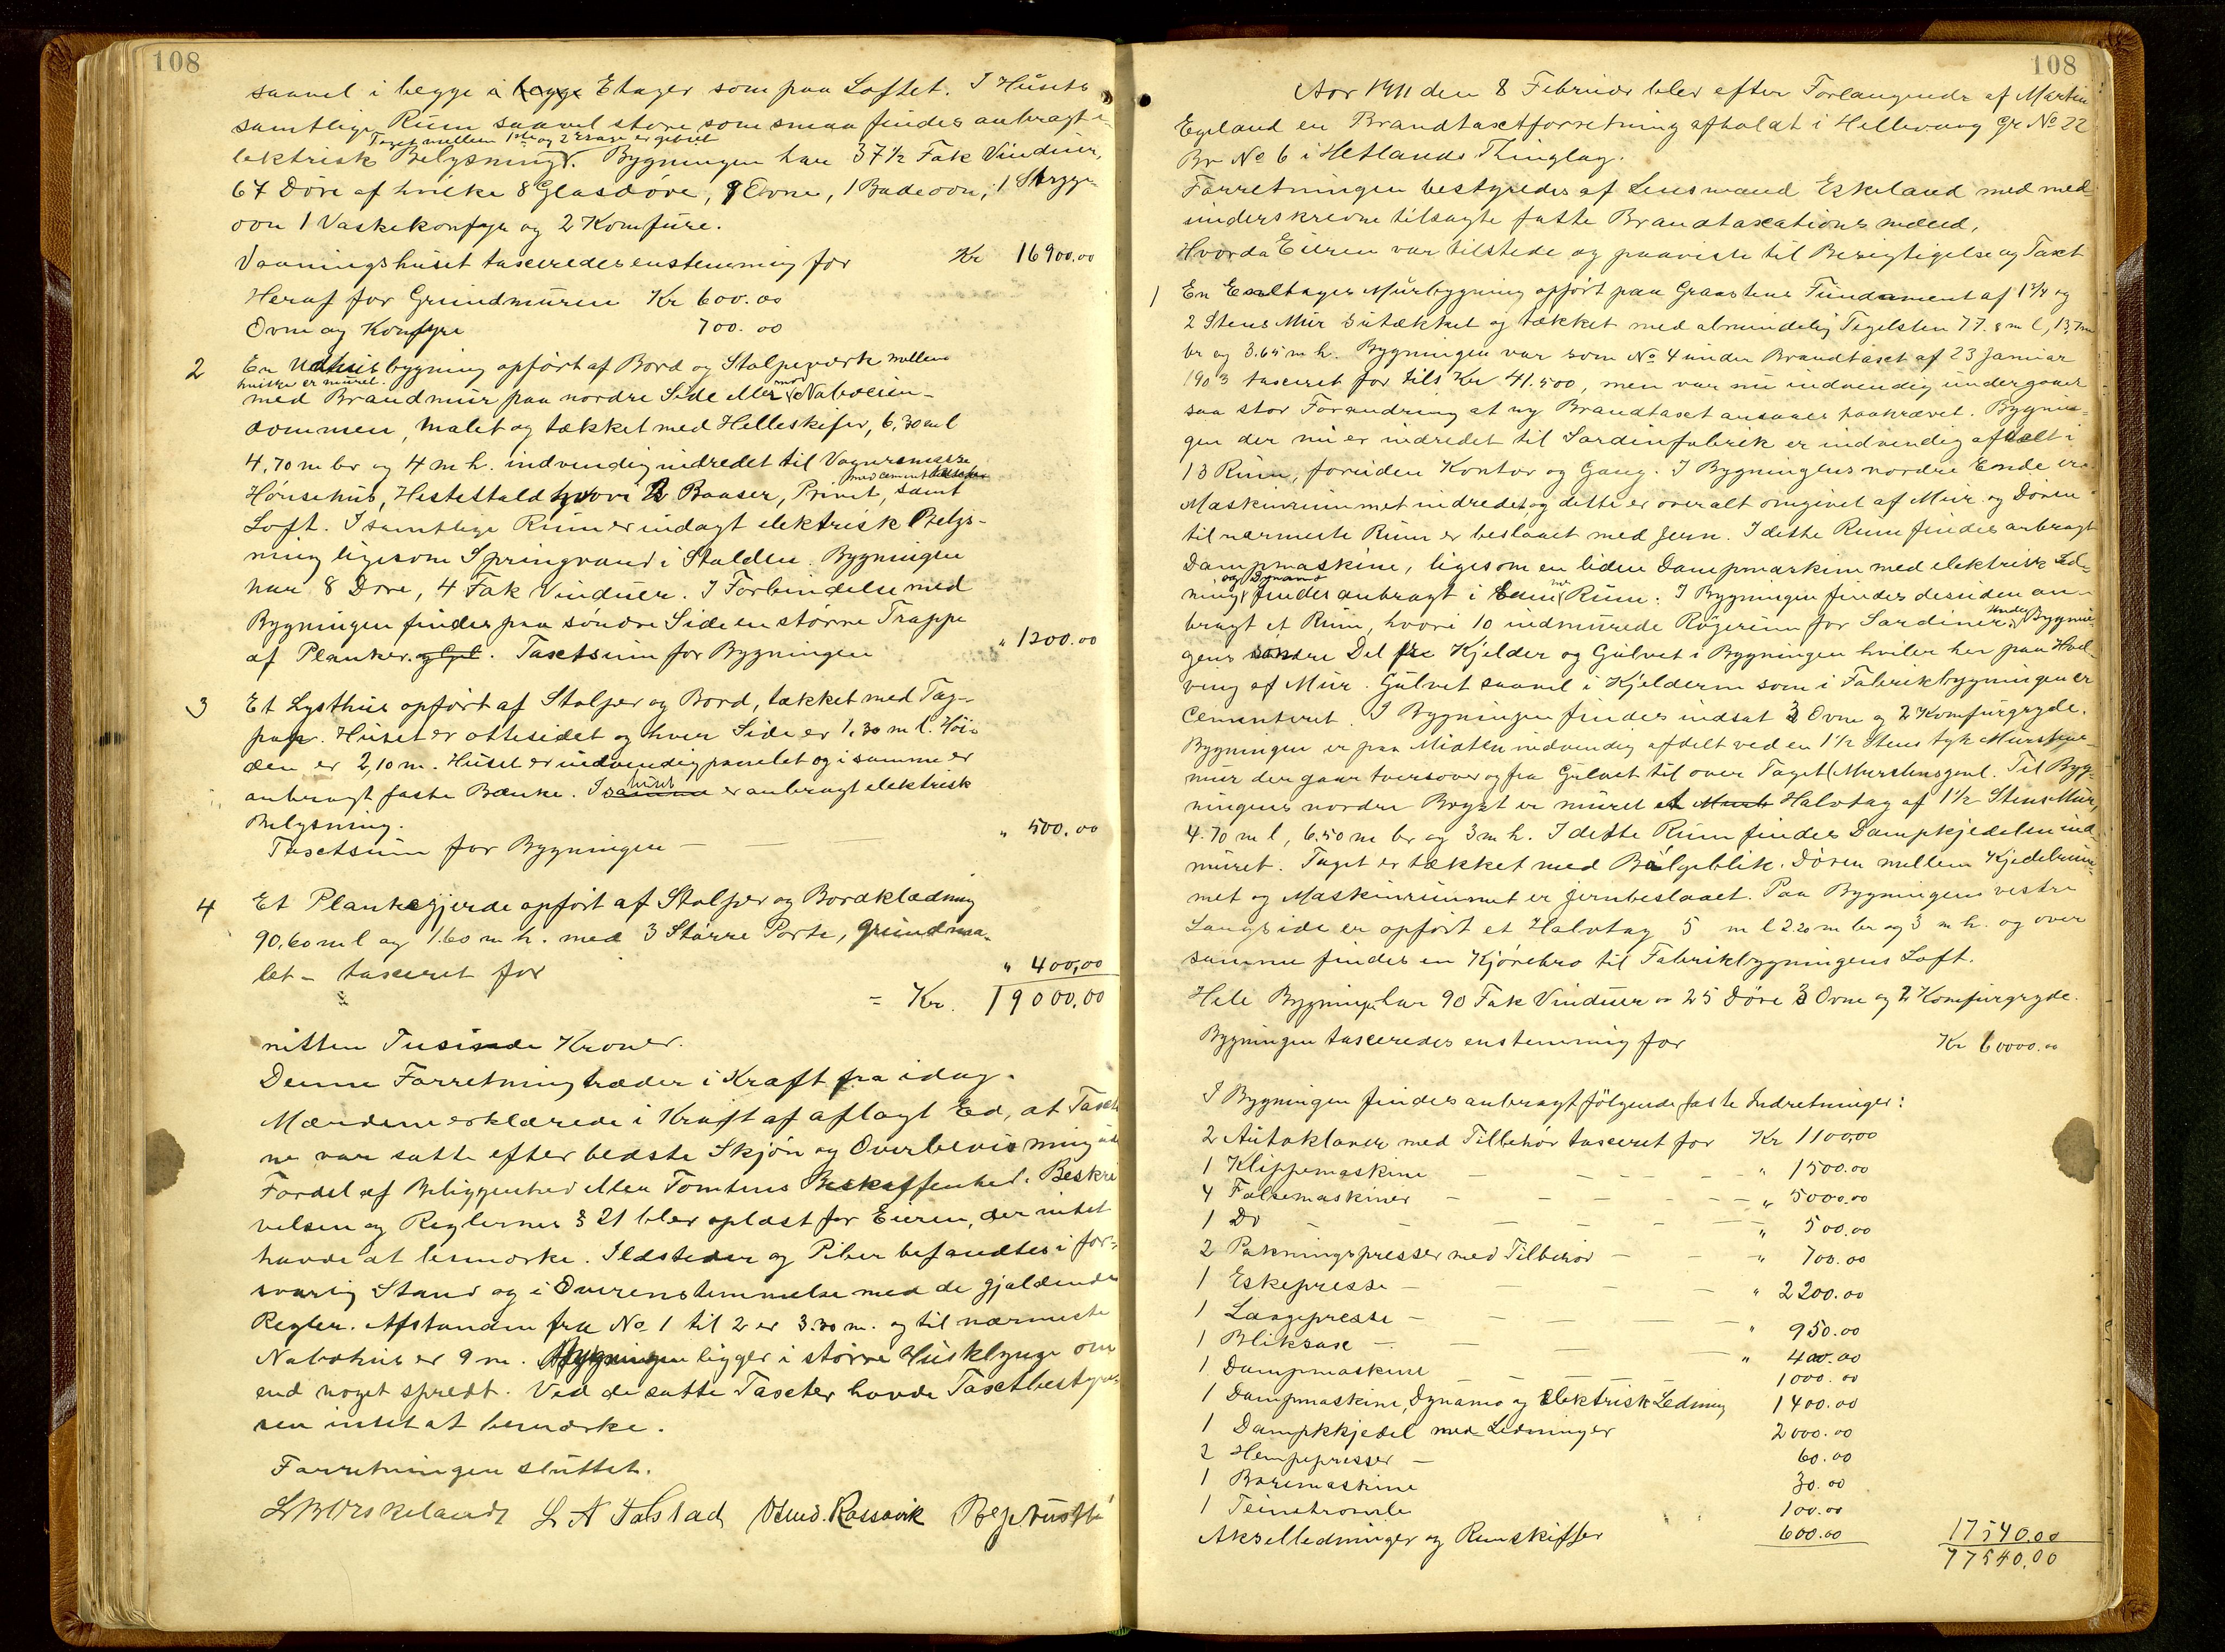 108
saavel i begge i begge Etager som paa Loftet. I Husets
samtlige Rum saavel store som smaa findes anbragt e-
Taget mellem 1ste og 2 Etage er gibset
lektrisk Belysning. Bygningen har 37 1/2 Fak Vinduer,
67 Döre af hvilke 8 Glasdöre, 9 Ovne, 1 Badeovn, 1 Stryge-
ovn 1 Vaskekonfyr og 2 Komfure.
Vaaningshuset taxeredes enstemmig for Kr 16900.00
Heraf for Grundmuren Kr 600.00
Ovne og Komfyre 700.00
2 En Udhusbygning opfört af Bord og Stolpeverk mellem
hvilke er muret.
med Brandmur paa nordre Side eller mod Naboeien-
dommen, malet og tækket med Helleskifer, 6,30 m l
4,70 m br og 4 m h. indvendig indredet til Vognremisse
med Cement
Hönsehus, Hestestald hvori 2 Baaser, Privet, samt
Loft. I samtlige Rum er indlagt elektrisk Belys-
ning ligesom Springvand i Stalden. Bygningen
har 8 Döre, 4 Fak Vinduer. I Forbindelse med
Bygningen findes paa söndre Side en större Trappe
af Planker. Taxtsum for Bygningen " 1200.00
3 Et Lysthus opfört af Stolper og Bord, tækket med Tag-
pap. Huset er ottesidet og hver Side er 1,30 m l. Höi-
den er 2,10 m. Huset er indvendig panelet og i samme er
anbragt faste Bænke. I samme huset er anbragt elektrisk
Belysning.
Taxtsum for Bygningen — " 500.00
4 Et Plankegjerde opfört af Stolper og Bordklædning
90,60 m l og 1.60 m h. med 3 Större Porte, grundmaa-
let - taxeret for " 400,00
= Kr. 19000,00
nitten Tusinde Kroner.
Denne Forretning træder i Kraft fra idag.
Mændene erklærede i Kraft af aflagt Ed, at Taxter
ne var satte efter bedste Skjön og Overbevisning uden
Fordel af Beliggenhed eller Tomtens Beskaffenhed. Beskri
velsen og Reglernes § 21 blev oplæst for Eieren, der intet
havde at bemærke. Ildsteder og Piber befandtes i for-
svarlig Stand og i Overenstemmelse med de gjældende
Regler. Afstanden fra No 1 til 2 er 3.30 m. og til nærmeste
Nabohus er 9 m. Bygningen ligger i större Husklynge om
end noget spredt. Ved de satte Taxter havde Taxtbestyrel
sen intet at bemærke.
Forretningen sluttet.
L A Tolstad Osmd. Rossavik
108
Aar 1911 den 8 Februar blev efter Forlangende af Martin
Egeland en Brandtaxtforretning afholdt i Hillevaag Gr No 22
Br No 6 i Hetlands Thinglag.
Forretningen bestyredes af Lensmand Eskeland med med-
underskrevne tilsagte faste Brandtaxationsmænd,
Hvorda Eieren var tilstede og paaviste til Besigtigelse og Taxt
1 En Enetages Murbygning opfört paa Graastens Fundament af 1 1/2 og
2 Stens Mur sutækket og tækket med almindelig Tegelsten 77.8 m l, 13,7 m
br og 3.65 m h. Bygningen var som No 4 under Brandtaxt af 23 Januar
1903 taxeret for tils Kr 41.500, men var nu indvendig undergaaet
saa stor Forandring at ny Brandtaxt ansaaes paakrævet. Bygnin-
gen der nu er indredet til Sardinfabrik er indvendig afdelt i
13 Rum, foruden Kontor og Gang. I Bygningens nordre Ende er
Maskinrummet indredet og dette er overalt omgivet af Mur og Dören
til nærmeste Rum er beslaaet med Jern. I dette Rum findes anbragt
Dampmaskine, ligesom en liden Dampmaskine med elektrisk Led-
og Dynamo
ning findes anbragt i samme Rum. I Bygningen findes desuden an-
bragt et Rum, hvori 10 indmurede Rögerum for Sardiner. Under Bygnin-
gens söndre Del er Kjelder og Gulvet i Bygningen hviler her paa Hvel-
ving af Mur. Gulvet saavel i Kjelderen som i Fabrikbygningen er
Cementeret. I Bygningen findes indsat 3 Ovne og 2 Komfurgryde.
Bygningen er paa Midten indvendig afdelt ved en 1 1/2 Stens tyk Murstens-
mur der gaar tversover og fra Gulvet til over Taget (Murstensgavl. Til Byg-
ningens nordre Bryst er muret et Halvtag af 1 1/2 Stens Mur,
4.70 m l, 6.50 m br og 3 m h. I dette Rum findes Dampkjedelen ind-
muret. Taget er tækket med Bölgeblik. Dören mellem Kjedelrum-
met og Maskinrummet er jernbeslaaet. Paa Bygningens vestre
Langside er opfört et Halvtag 5 m l 2.20 m br og 3 m h. og over
samme findes en Kjörebro til Fabrikbygningens Loft.
Hele Bygningen har 90 Fak Vinduer og 25 Döre 3 Ovne og 2 Komfurgryde.
Bygningen taxeredes enstemmig for Kr 60000.00
I Bygningen findes anbragt fölgende faste Indretninger:
2 Autoklaver med Tillbehör taxeret for Kr 1100,00
1 Klippemaskine — " 1500.00
4 Falsemaskiner — " 5000.00
1 Do — " 500.00
2 Pakningspresser med Tilbehör — " 700.00
1 Eskepresse — " 2200.00
1 Langepresse — " 950.00
1 Bliksax — " 400.00
1 Dampmaskine — 1000.00
1 Dampmaskine, Dynamo og elektrisk Ledning 1400.00
1 Dampkkjedel med Ledninger 2000.00
2 Hempepresser — 60.00
1 Boremaskine 30.00
1 Teinetromle 100.00
Akselledninger og Remskifser 600.00 17540.00
77540,00